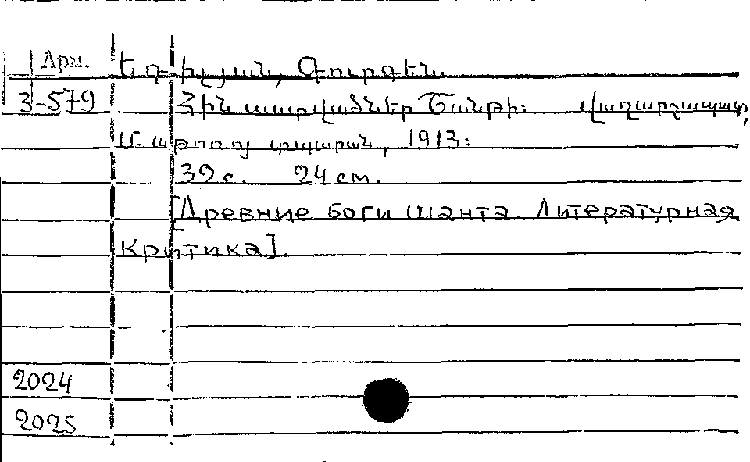 Арм. Եդիլյան, Գուրգեն.
3-579 Հին աստվածներ Շանթի: Վաղարշապատ,
Մ. Աթոռոյ տպարան, 1913:
39 с. 24 см.
[Древние боги Шанта. Литературная
критика].
2024
2025